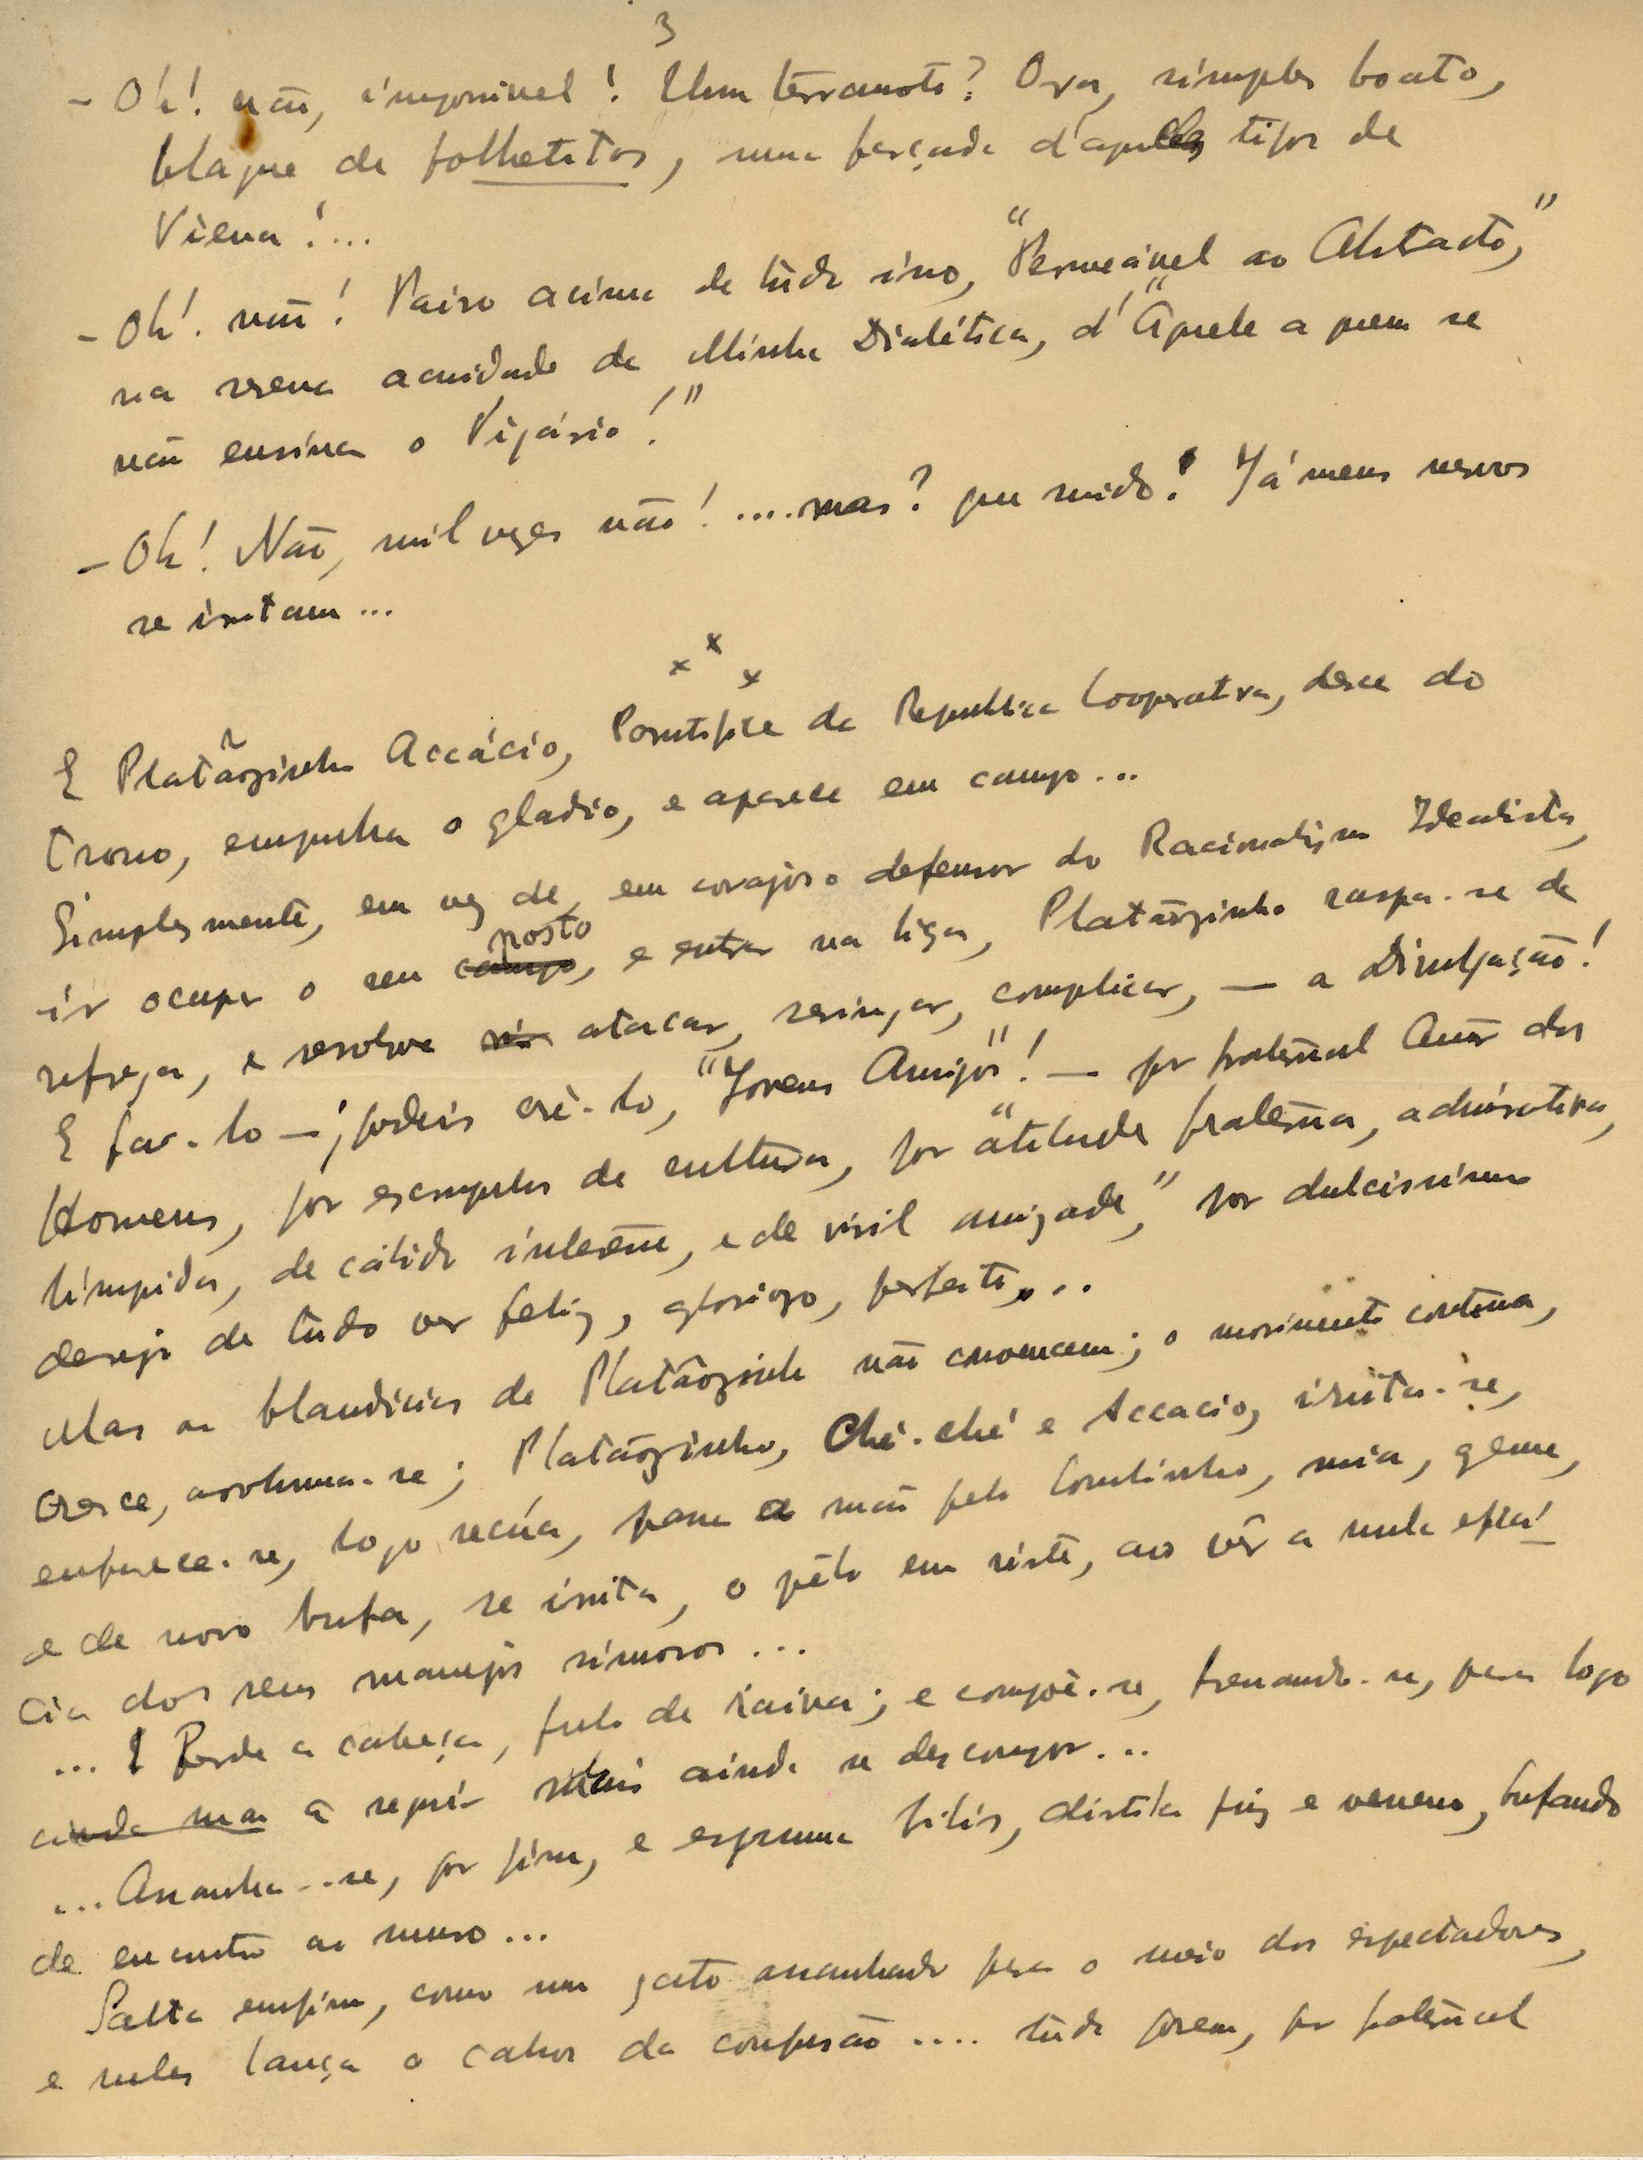 3
- Oh! não, impossivel! Um terramoto? Ora, simples boato,
blague de folhetitos, uma forçada d'aqueles tipos de
Viena!...
- Oh! não! Pairo acima de tudo isso, "Permeável ao Abstacto,"
na serena acuidade da Minha Dialética, d'"Aquele a quem se
não ensina o Vigário!"
- Oh! Não, mil vezes não! .... mas? que ruido! Já meus nervos
se irritam...
x x x
E Platãozinho Accácio, Pontifice da Republica Cooperativa, desce do
trono, empunha o gladio, e aparece em campo...
Simplesmente, em vez de, em corajoso defensor do Racionalismo Idealista,
ir ocupar o seu campo posto, e entrar na liça, Platãozinho raspa-se da
refrega, e resolve atacar, seringar, complicar, — a Divulgação!
E faz-lo —, podeis crê-lo, "Jovens Amigos"! — por fraternal Amôr dos
Homens, por escrupulos de cultura, por "atitude fraterna, admirativa,
límpida, de cálido interesse, e de viril amizade," por dulcissimo
desejo de tudo ver feliz, glorioso, perfeito...
Mas as blandicias de Platãozinho não convencem; o movimento continua,
cresce, avoluma-se; Platãozinho, Ché-ché e Accacio, irrita-se,
enfurece-se, logo recúa, passa a mão pelo lombinho, mia, geme,
e de novo bufa, se irrita, o pêlo em riste, ao vêr a nula eficá-
cia dos seus manejos simosos...
... Perde a cabeça, fulo de raiva; e compõe-se, frenando-se, para logo
ainda mas a seguir mais ainda se descompor...
...Assanha-se, por fim, e espuma bilis, distila fúz e veneno, bufando
de encontro ao muro...
Salta emfim, como um gato assanhado para o meio dos espectadores,
e neles lança o cahos da confusão .... tudo porem, por fraternal